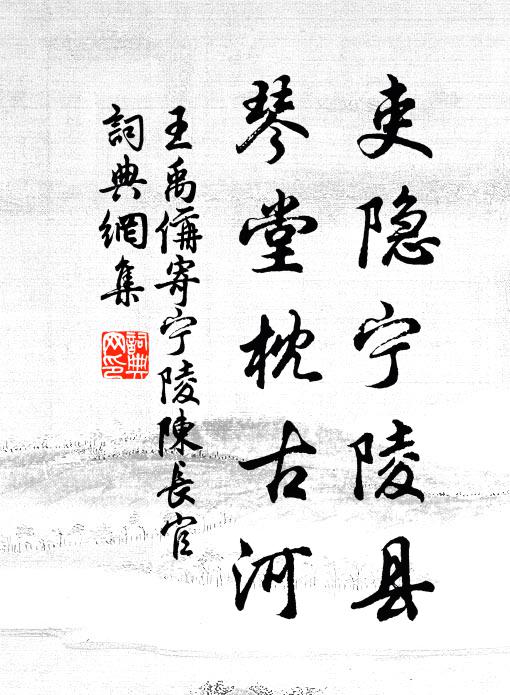 吏隐宁陵县
琴堂枕古河
王禹偁寄宁陵陳長官
詞典網集
詞典網印